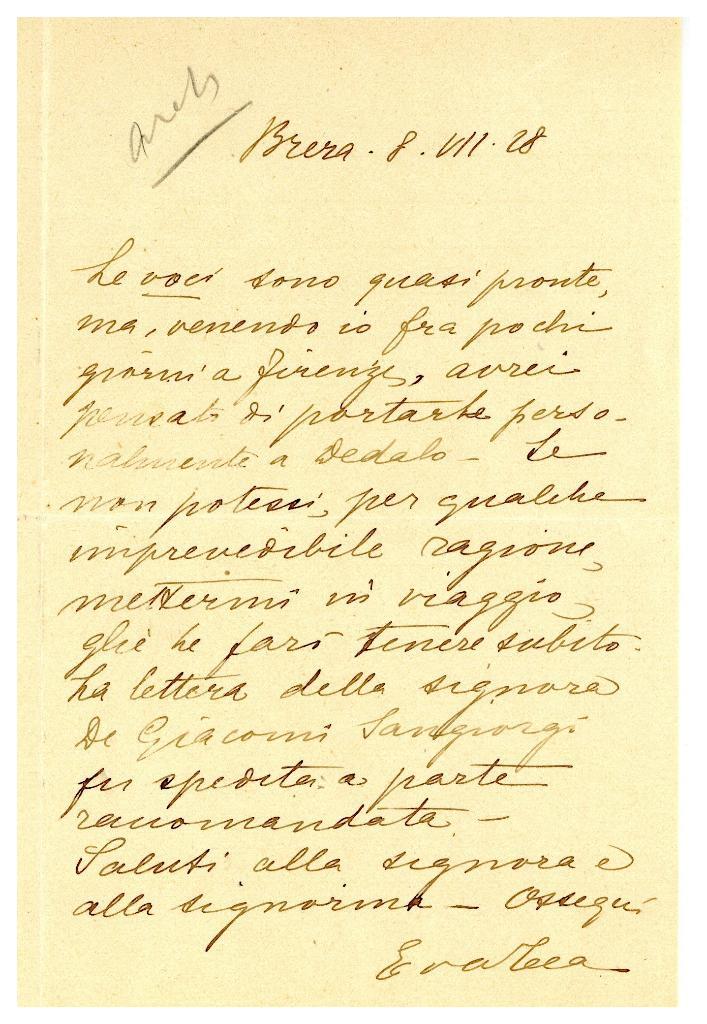 Brera. 8. VII. 28
Le voci sono quasi pronte,
ma, venendo io fra pochi
giorni a Firenze, avrei
pensato di portarle perso-
nalmente a Dedalo - Se
non potessi, per qualche
imprevedibile ragione,
mettermi in viaggio,
glie le farò tenere subito.
La lettera della signora
De Giacomi Sangiorgi
fu spedita a parte
raccomandata -
Saluti alla signora e
alla signorina - Ossequi
Eva Tea